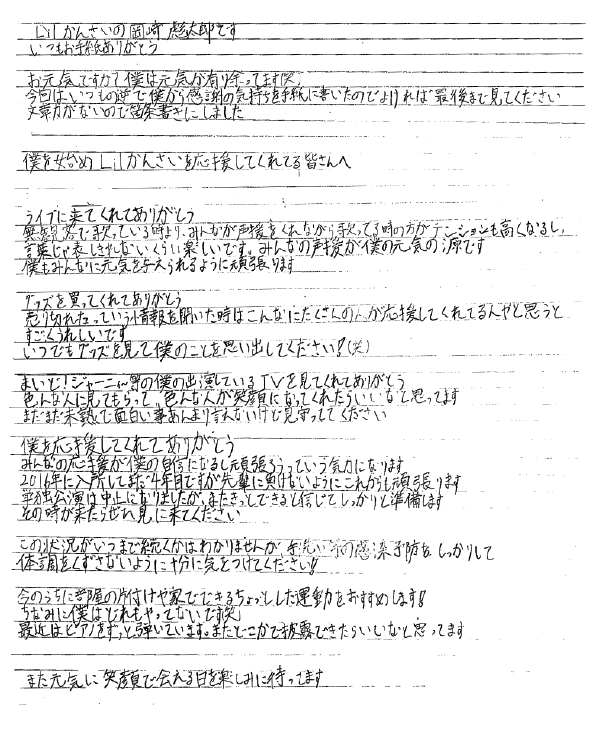 Lilかんさいの岡﨑 彪太郎です
いつもお手紙ありがとう
お元気ですか?僕は元気が有り余ってます(笑)
今回はいつもの逆で僕から感謝の気持ちを手紙に書いたのでよければ最後まで見てください
文章力がないので箇条書きにしました
僕を始めLilかんさいを応援してくれてる皆さんへ
ライブに来てくれてありがとう
無観客で歌っている時より、みんなが声援をくれながら歌ってる時の方がテンションも高くなるし、
言葉じゃ表しきれないくらい楽しいです。みんなの声援が僕の元気の源です
僕もみんなに元気を与えられるように頑張ります
グッズを買ってくれてありがとう
売り切れたっていう情報を聞いた時はこんなにたくさんの人が応援してくれてる人やと思うと
すごくうれしいです
いつでもグッズを見て僕のことを思い出してください!(笑)
まいど!ジャーニィ〜等の僕の出演しているTVを見てくれてありがとう
色んな人に見てもらって色んな人が笑顔になってくれたらいいなと思ってます
まだまだ未熟で面白い事あんまり言えないけど見守っててください
僕を応援してくれてありがとう
みんなの応援が僕の自信になるし頑張ろうっていう気力になります
2016年に入所してまだ4年目ですが先輩に負けないようにこれからも頑張ります
単独公演は中止になりましたが、またきっとできると信じてしっかりと準備します
その時が来たらぜひ見に来てください
この状況がいつまで続くかはわかりませんが、手洗い等の感染予防をしっかりして
体調をくずさないように十分に気をつけてください!!
今のうちに部屋の片付けや家でできるちょっとした運動をおすすめします!
ちなみに僕はどれもやってないです(笑)
最近はピアノをずっと弾いています。またどこかで披露できたらいいなと思ってます
また元気に笑顔で会える日を楽しみに待ってます